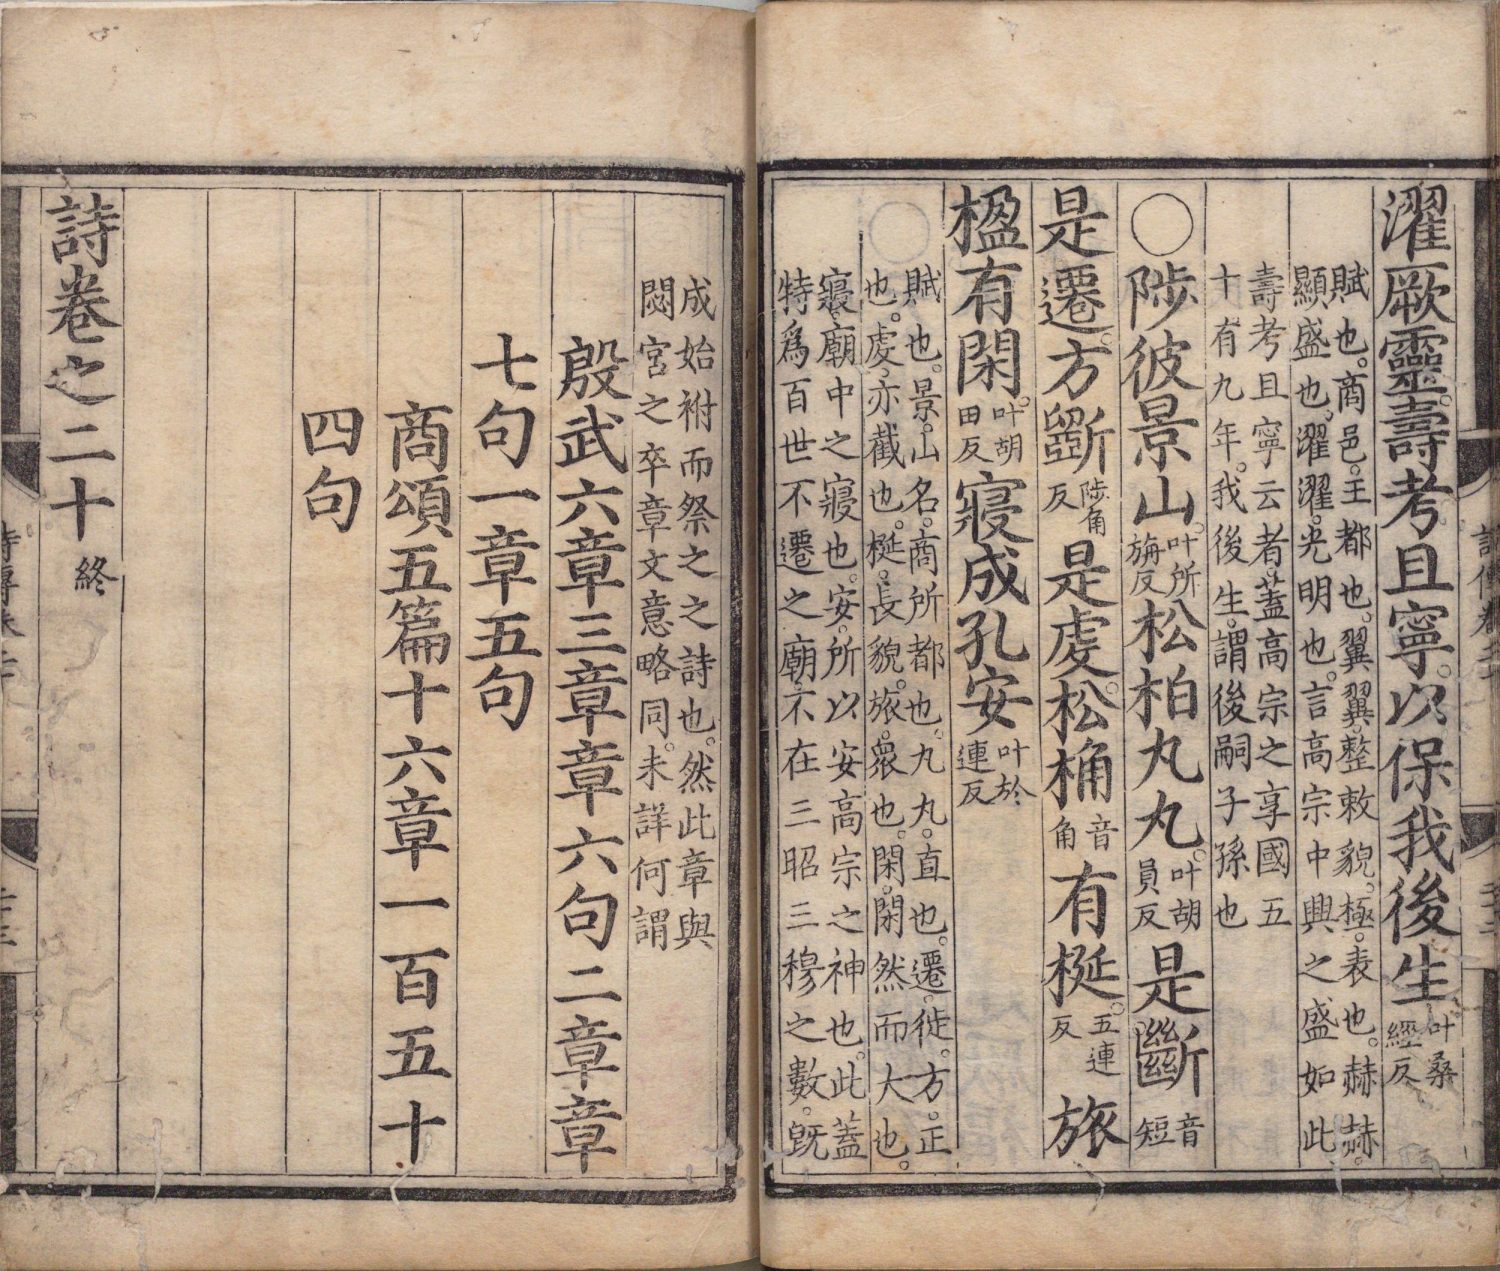 濯厥靈。壽考且寧。以保我後生叶桑經反
賦也。商邑。王都也。翼翼。整敕貌。極。表也。赫赫。
顯盛也。濯濯。光明也。言高宗中興之盛如此
壽考且寧云者蓋高宗之享國五
十有九年。我後生。謂後嗣子孫也
○陟彼景山。叶所旃反松柏丸丸。叶胡員反是斷音短
是遷。方斲陟角反是虔。松桷音角有梴。五連反旅
楹有閑。叶胡田反寢成孔安叶於連反
賦也。景。山名。商所都也。丸丸。直也。遷。徙。方。正
也。虔。亦截也。梴。長貌。旅。衆也。閑。閑然而大也。
寢。廟中之寢也。安。所以安高宗之神也。此蓋
特為百世不遷之廟不在三昭三穆之數。既
成始祔而祭之之詩也。然此章與
閟宮之卒章文意略同。未詳何謂
殷武六章三章章六句二章章
七句一章五句
商頌五篇十六章一百五十
四句
詩卷之二十終